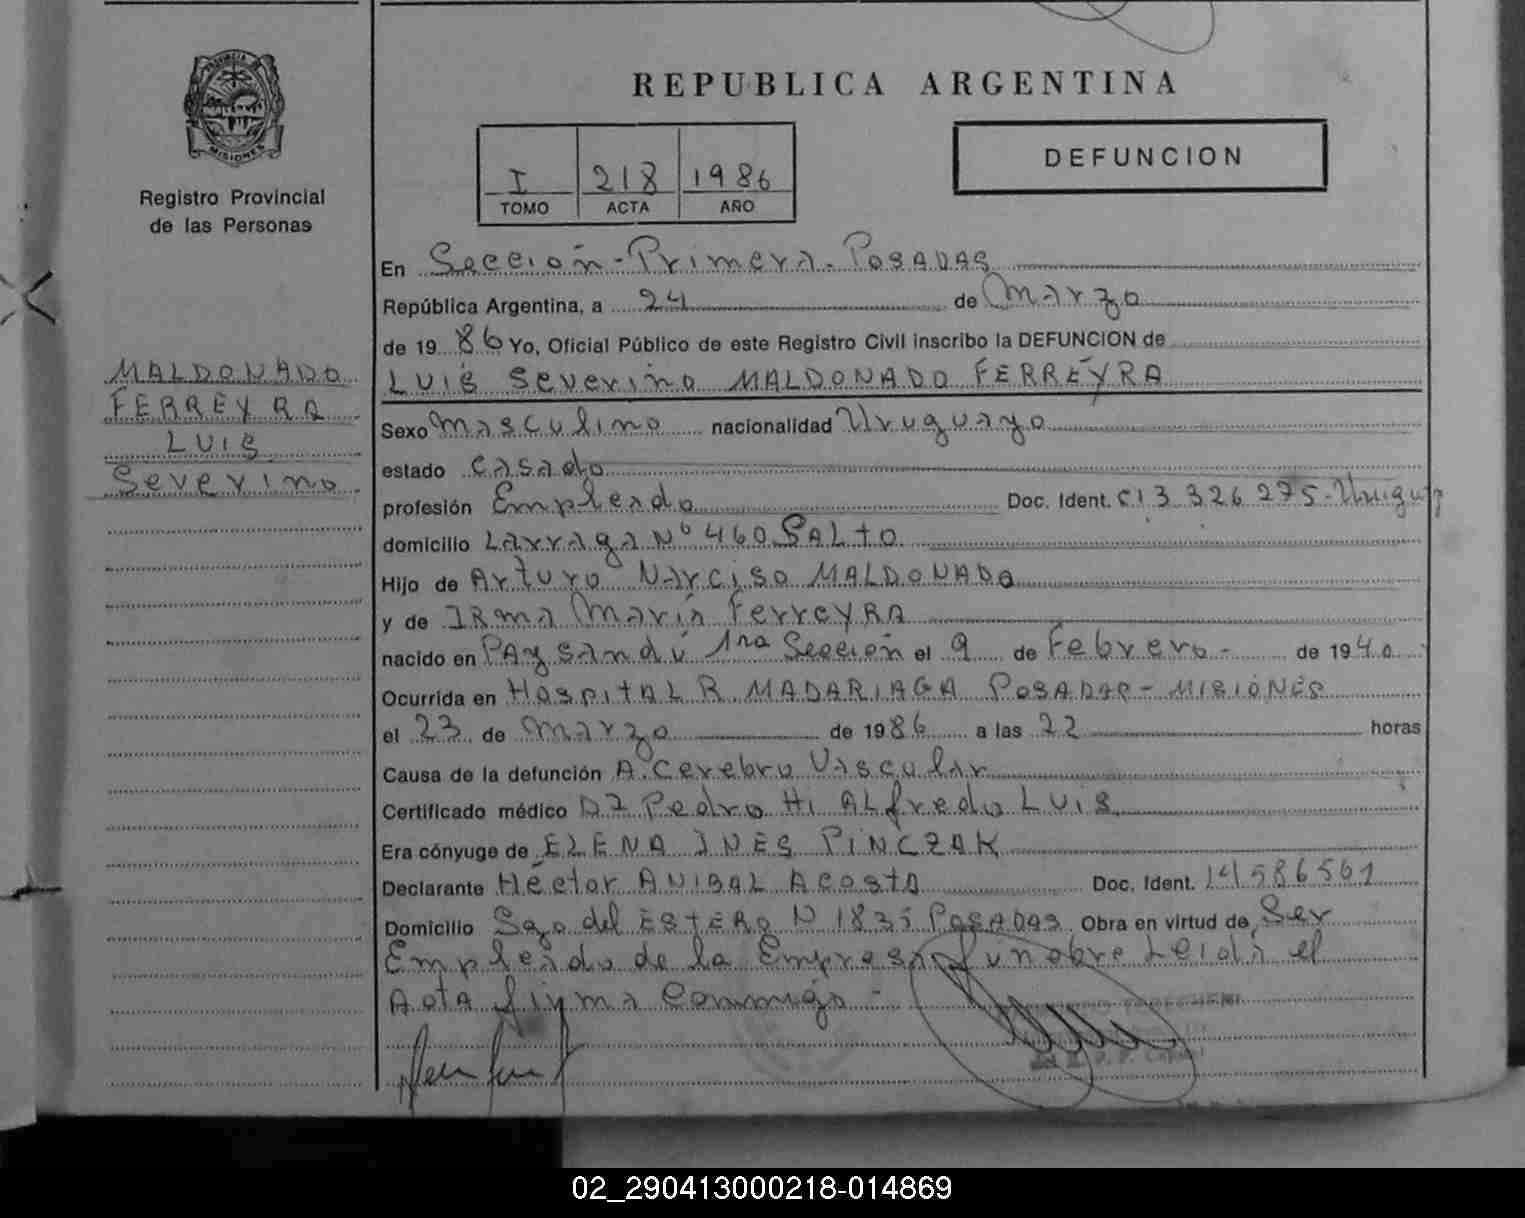 PROVINCIA DE
MISIONES
Registro Provincial
de las Personas
MALDONADO
FERREYRA
LUIS
Severino
REPUBLICA ARGENTINA
I 218 1986
TOMO ACTA AÑO
DEFUNCION
En Sección - Primera - POSADAS
República Argentina, a 24 de Marzo
de 19 86 Yo, Oficial Público de este Registro Civil inscribo la DEFUNCION de
LUIS Severino MALDONADO FERREYRA
Sexo Masculino nacionalidad Uruguayo
estado casado
profesión Empleado Doc. Ident. CI 3 326 275-Uruguay
domicilio Larraga Nº 460 SALTO
Hijo de Arturo Narciso MALDONADO
y de IRma María FerreyRA
nacido en PAysandú 1ra Sección el 9 de Febrero - de 19 40
Ocurrida en HospitAL R. MADARIAGA POSADAS - MISIONES
el 23 de Marzo de 1986 a las 22 horas
Causa de la defunción A. Cerebro Vascular
Certificado médico Dr Pedro H. ALfredo LUIS
Era cónyuge de ELENA INES PINCZAK
Declarante Héctor ANIBAL Acosta Doc. Ident. 14586561
Domicilio Sgo del ESTERO N 1835 POSADAS Obra en virtud de Ser
Empleado de la Empresa funebre Leida el
Acta firma conmigo -
02_290413000218-014869